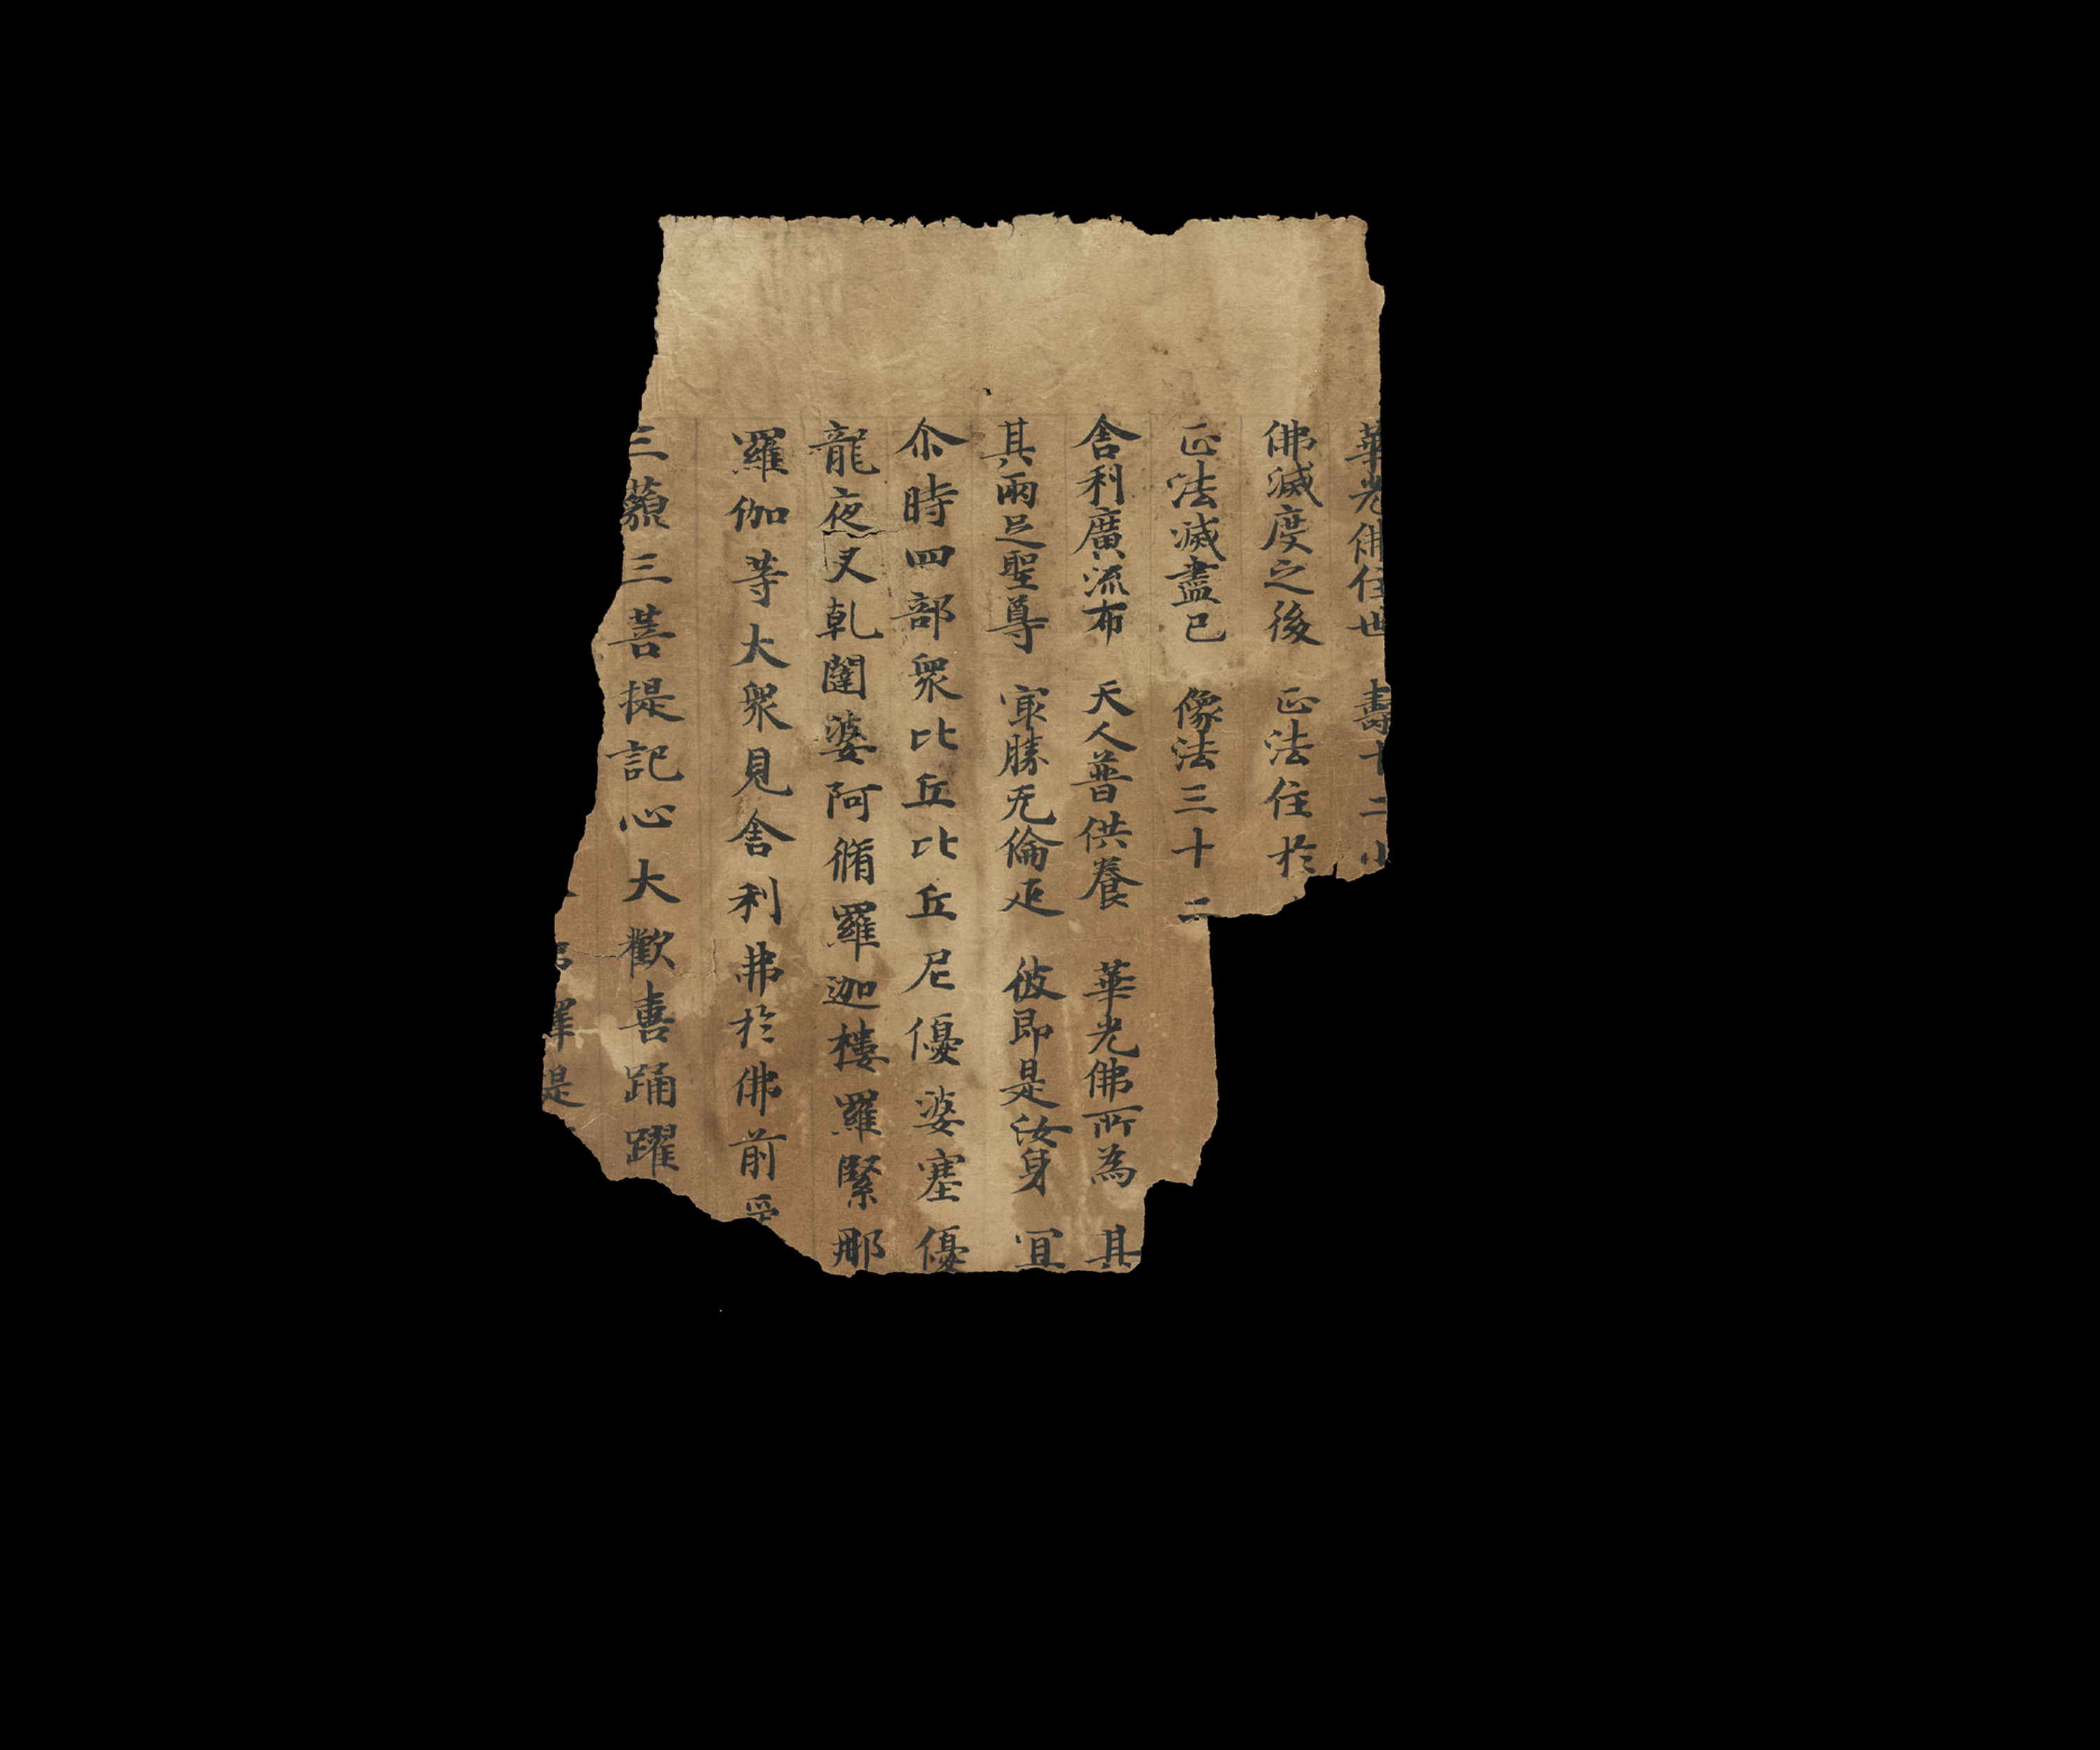 華光佛住世 壽十二小
佛滅度之後 正法住於
正法滅盡已 像法三十二
舍利廣流布 天人普供養 華光佛所為 其
其兩足聖尊 冣勝无倫疋 彼即是汝身 宜
尒時四部衆比丘比丘尼優婆塞優
龍夜叉乹闥婆阿脩羅迦樓羅緊那
羅伽等大衆見舍利弗於佛前受
三藐三菩提記心大歡喜踊躍
提